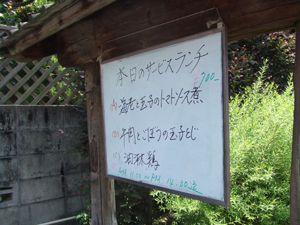 本日のサービスランチ
700-
海老と玉子のトマトソース煮
牛肉とごぼうの玉子とじ
油淋鶏